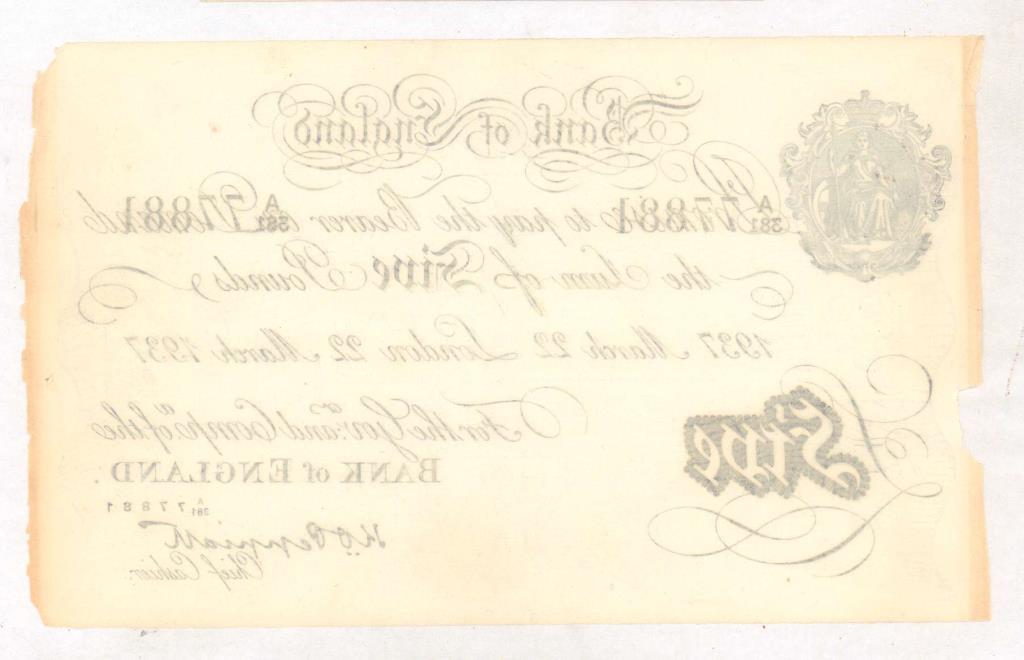 Bank of England
A/381 77881 A/381 77881
to pay the Bearer on Demand
the Sum of Five Pounds
1937 March 22 London 22 March 1937
For the Govr. and Compa. of the
BANK of ENGLAND.
Five
A/381 77881
Chief Cashier.